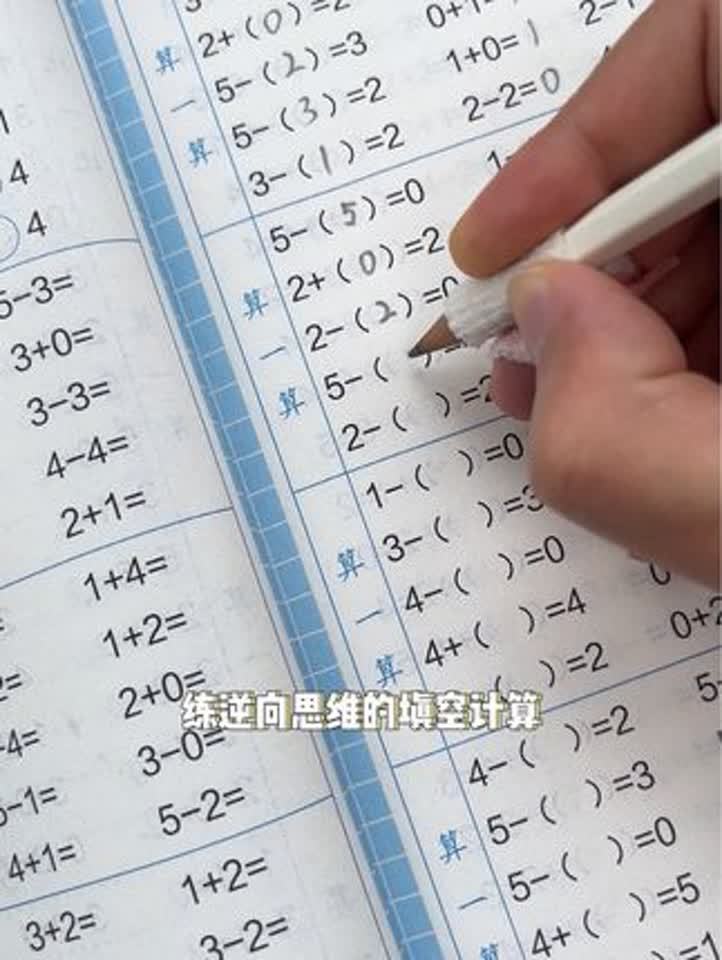 2+(0)=2
5-(2)=3
1+0=1
5-(3)=2
2-2=0
3-(1)=2
算一算
5-(5)=0
2+(0)=2
2-(2)=0
5-(
2-( )=2
算一算
1-( )=0
3-( )=3
4-( )=0
4+( )=4
( )=2
算一算
4-( )=2
5-( )=3
5-( )=0
4+( )=5
)=1
算一算
4
4
5-3=
3+0=
3-3=
4-4=
2+1=
1+4=
1+2=
2+0=
3-0=
5-2=
4+1=
1+2=
3+2=
3-2=
练逆向思维的填空计算